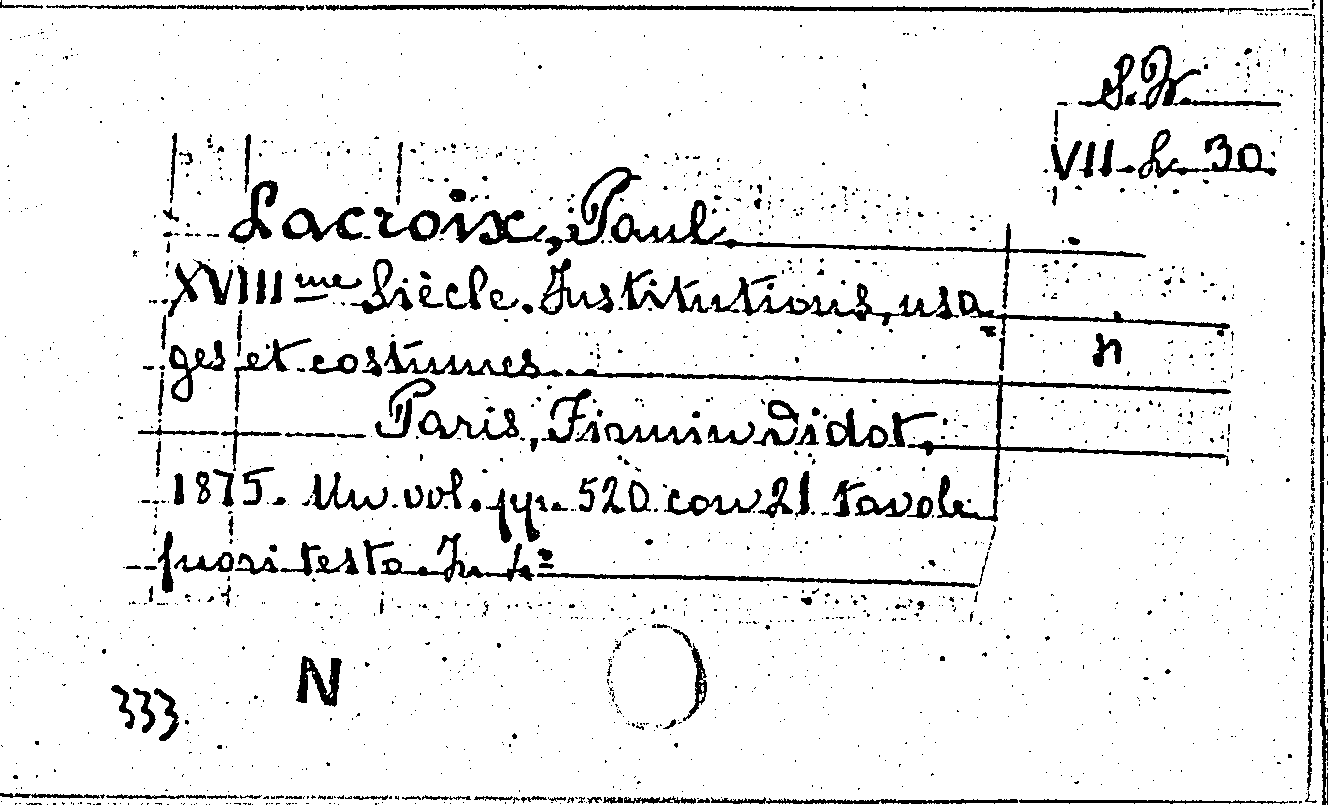 S. W.
VII. L. 30.
Lacroix, Paul.
XVIII me Siècle. Institutions, usa=
n
ges et costumes...
Paris, Firmin Didot,
1875. Un vol. pp. 520 con 21 tavole
fuori testo. In 4º
N
333.